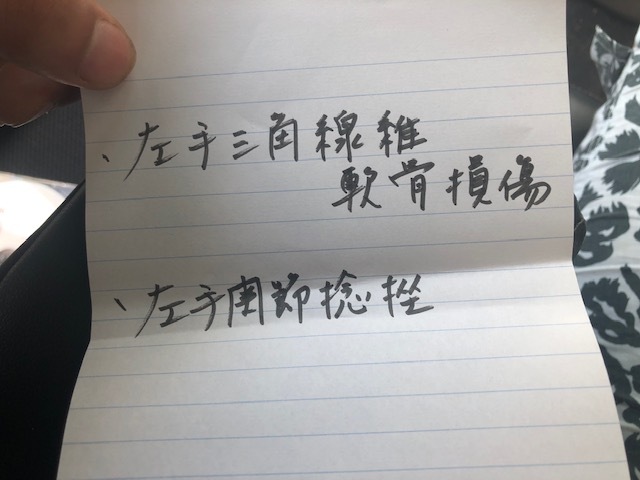 、左手三角線維
軟骨損傷
、左手関節捻挫